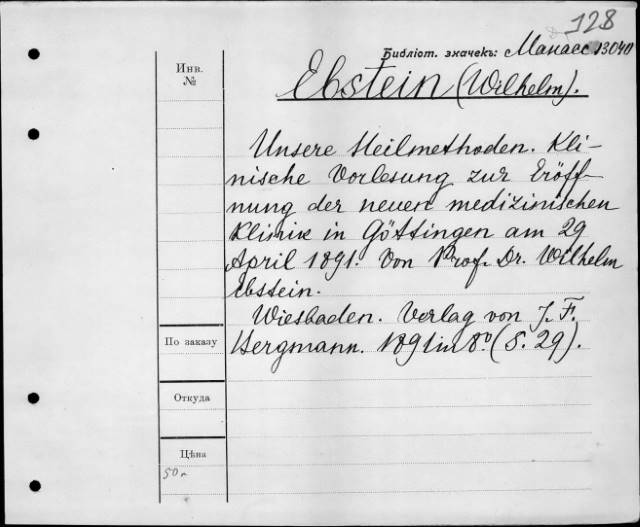 128
Библіот. значекъ: Манасс 13040
Инв.
№
Ebstein (Wilhelm).
Unsere Heilmethoden. Kli-
nische Vorlesung zur Eröff-
nung der neuen medizinischen
Klinik in Göttingen am 29
April 1891. Von Prof. Dr. Wilhelm
Ebstein.
Wiesbaden. Verlag von J. F.
Bergmann. 1891 in 8º. (S. 29).
По заказу
Откуда
Цѣна
50